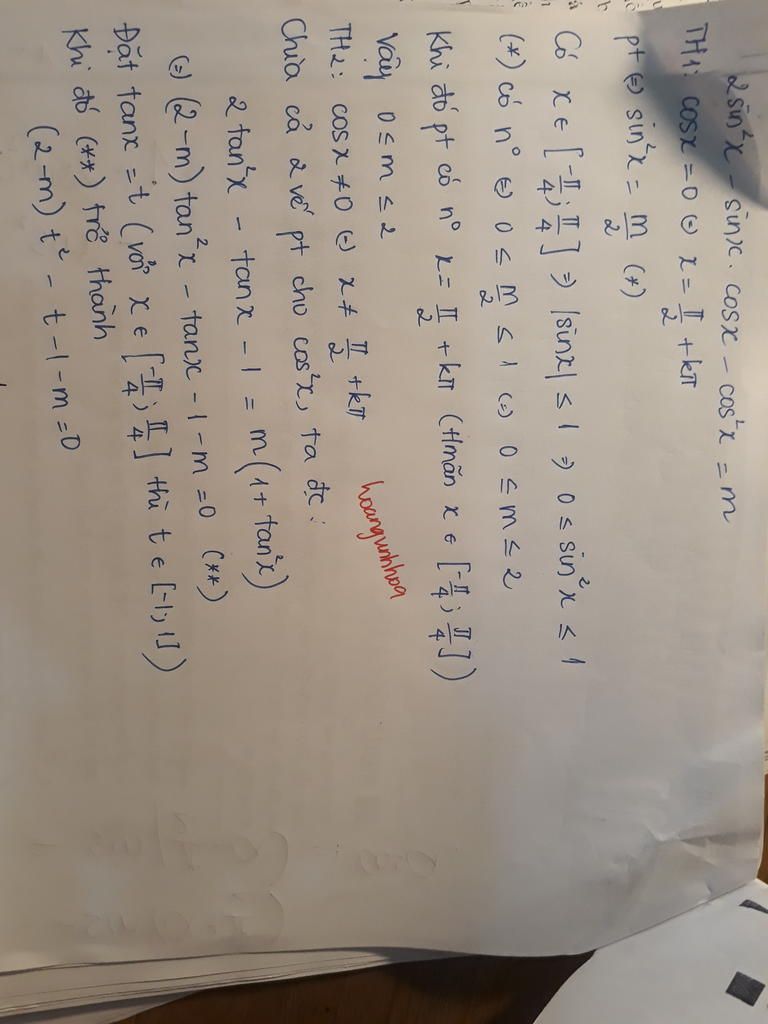 2sin²x - sinx. cosx - cos²x = m
TH1: cosx = 0 (=) x = π/2 + kπ
pt (=) sin²x = m/2 (*)
Có x ∈ [-π/4; π/4] => |sinx| ≤ 1 => 0 ≤ sin²x ≤ 1
(*) có n° (=) 0 ≤ m/2 ≤ 1 (=) 0 ≤ m ≤ 2
Khi đó pt có n° x = π/2 + kπ (t/mãn x ∈ [-π/4; π/4])
Vậy 0 ≤ m ≤ 2
TH2: cosx ≠ 0 (=) x ≠ π/2 + kπ
hoangunhhoa
Chia cả 2 vế pt cho cos²x, ta đc:
2 tan²x - tanx - 1 = m(1 + tan²x)
(=) (2-m) tan²x - tanx - 1 - m = 0 (**)
Đặt tanx = t (với x ∈ [-π/4; π/4] thì t ∈ [-1; 1])
Khi đó (**) trở thành
(2-m) t² - t - 1 - m = 0